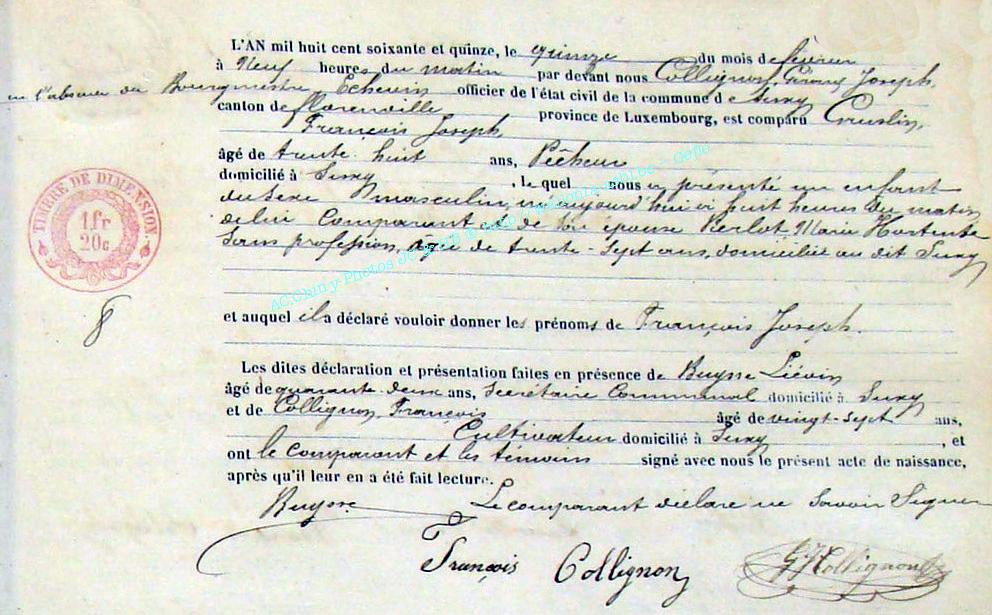 L'AN mil huit cent soixante et quinze, le quinze du mois de février
à Neuf heures du matin par devant nous Collignon, Gérard Joseph,
en l'absence du Bourgmestre, Echevin officier de l'état civil de la commune de Suxy
canton de florenville province de Luxembourg, est comparu
François Joseph,
âgé de trente huit ans, Pêcheur
domicilié à Suxy, le quel nous a présenté un enfant
du sexe masculin, né aujourd'hui à huit heures du matin
de lui comparant & de son épouse Pierlot Marie Hortense
Sans profession, agée de trente-sept ans, domiciliée au dit Suxy
TIMBRE DE DIMENSION
1 fr
20 c
8
et auquel il a déclaré vouloir donner les prénoms de François Joseph.
Les dites déclaration et présentation faites en présence de Buysse Liévin
âgé de quarante deux ans, Secrétaire Communal domicilié à Suxy
et de Collignon, François âgé de vingt-sept ans,
Cultivateur domicilié à Suxy, et
ont le comparant et les témoins signé avec nous le présent acte de naissance,
après qu'il leur en a été fait lecture.
Buysse Le comparant déclare ne Savoir Signer
François Collignon GJCollignon